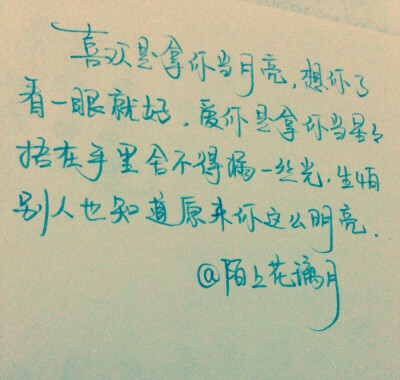 喜欢是拿你当月亮，想你了
看一眼就好。爱你是拿你当星星
捂在手里舍不得漏一丝光，生怕
别人也知道原来你这么明亮.
@陌上花漓月